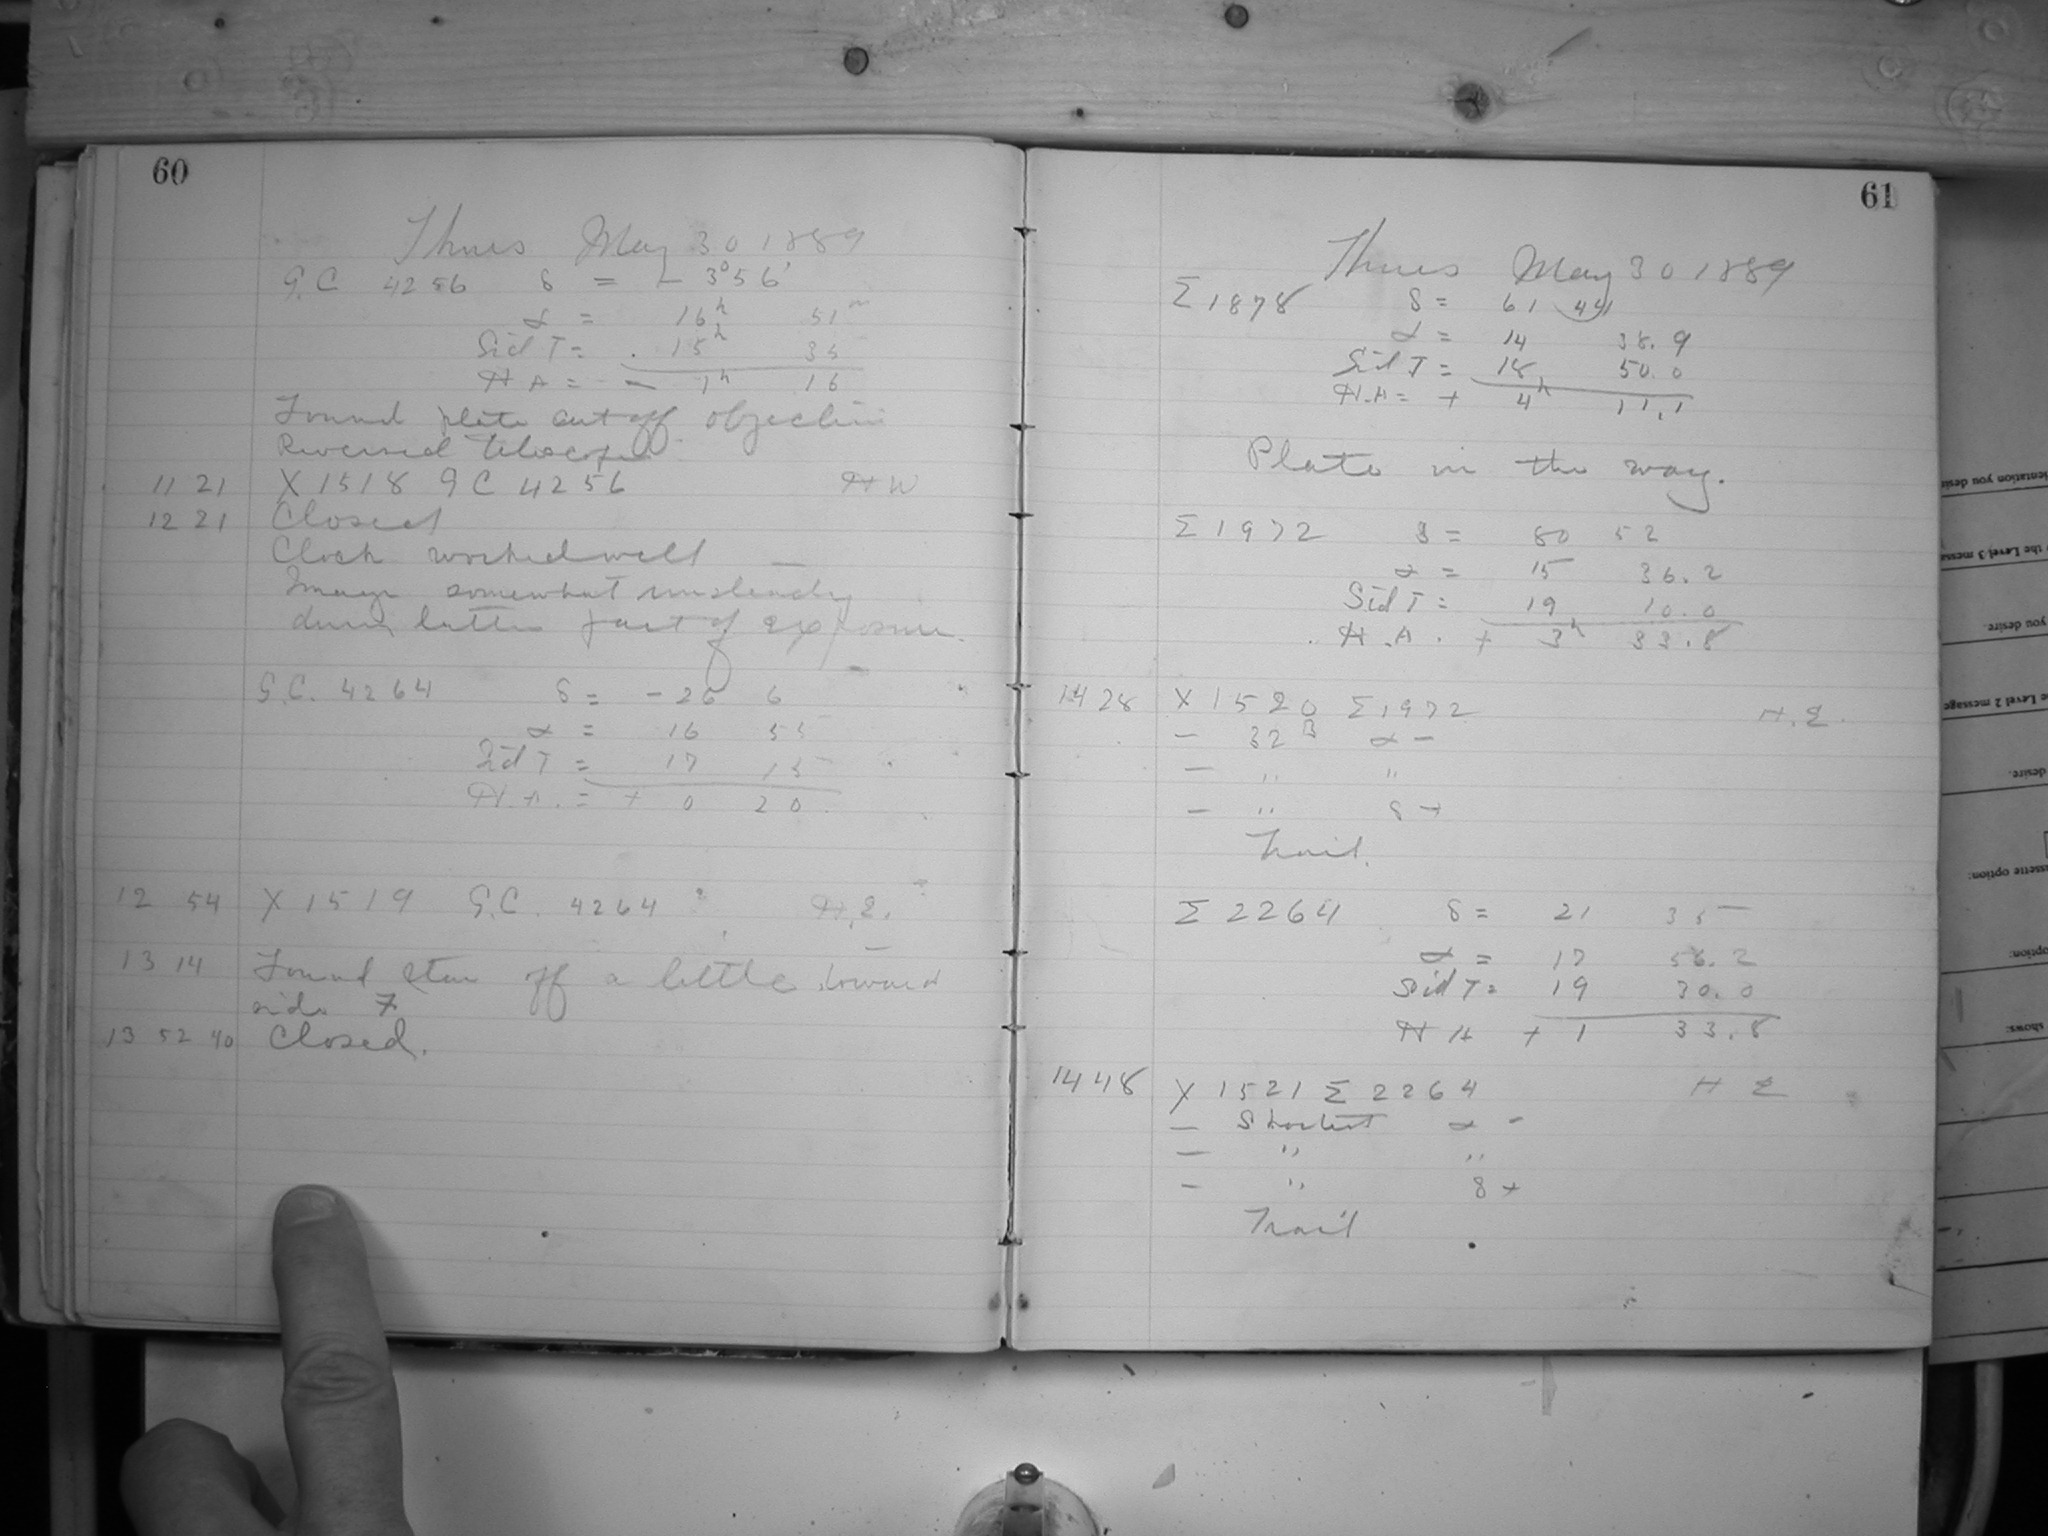 60
Thurs May 30 1889
G.C. 4256 δ = - 3° 56'
α = 16h 51m
Sid T = 15h 35
H A = - 1h 16
Found plate cut off objective
Reversed telescope
11 21 X 1518 G C 4256 H W
12 21 Closed
Clock worked well
Image somewhat unsteady
during latter part of exposure.
G.C. 4264 δ = - 26 6
α = 16 55
Sid T = 17 15
H.A. = + 0 20
12 54 X 1519 G.C. 4264 ? H.E.
13 14 Found star off a little toward
side
13 52 40 Closed.
61
Thurs May 30 1889
Σ 1878 δ = 61 44
α = 14 38.9
Sid T = 18 50.0
H.A = + 4h 11.1
Plate in the way.
Σ 1972 δ = 80 52
α = 15 36.2
Sid T = 19 10.0
H.A. + 3h 33.8
14 28 X 1520 Σ 1972 H.E.
- 32 B α -
- " "
- " δ +
Trail.
Σ 2264 δ = 21 35
α = 17 56.2
Sid T = 19 30.0
H A + 1 33.8
14 48 X 1521 Σ 2264 H E
- Shortest α -
- " "
- " δ +
Trail